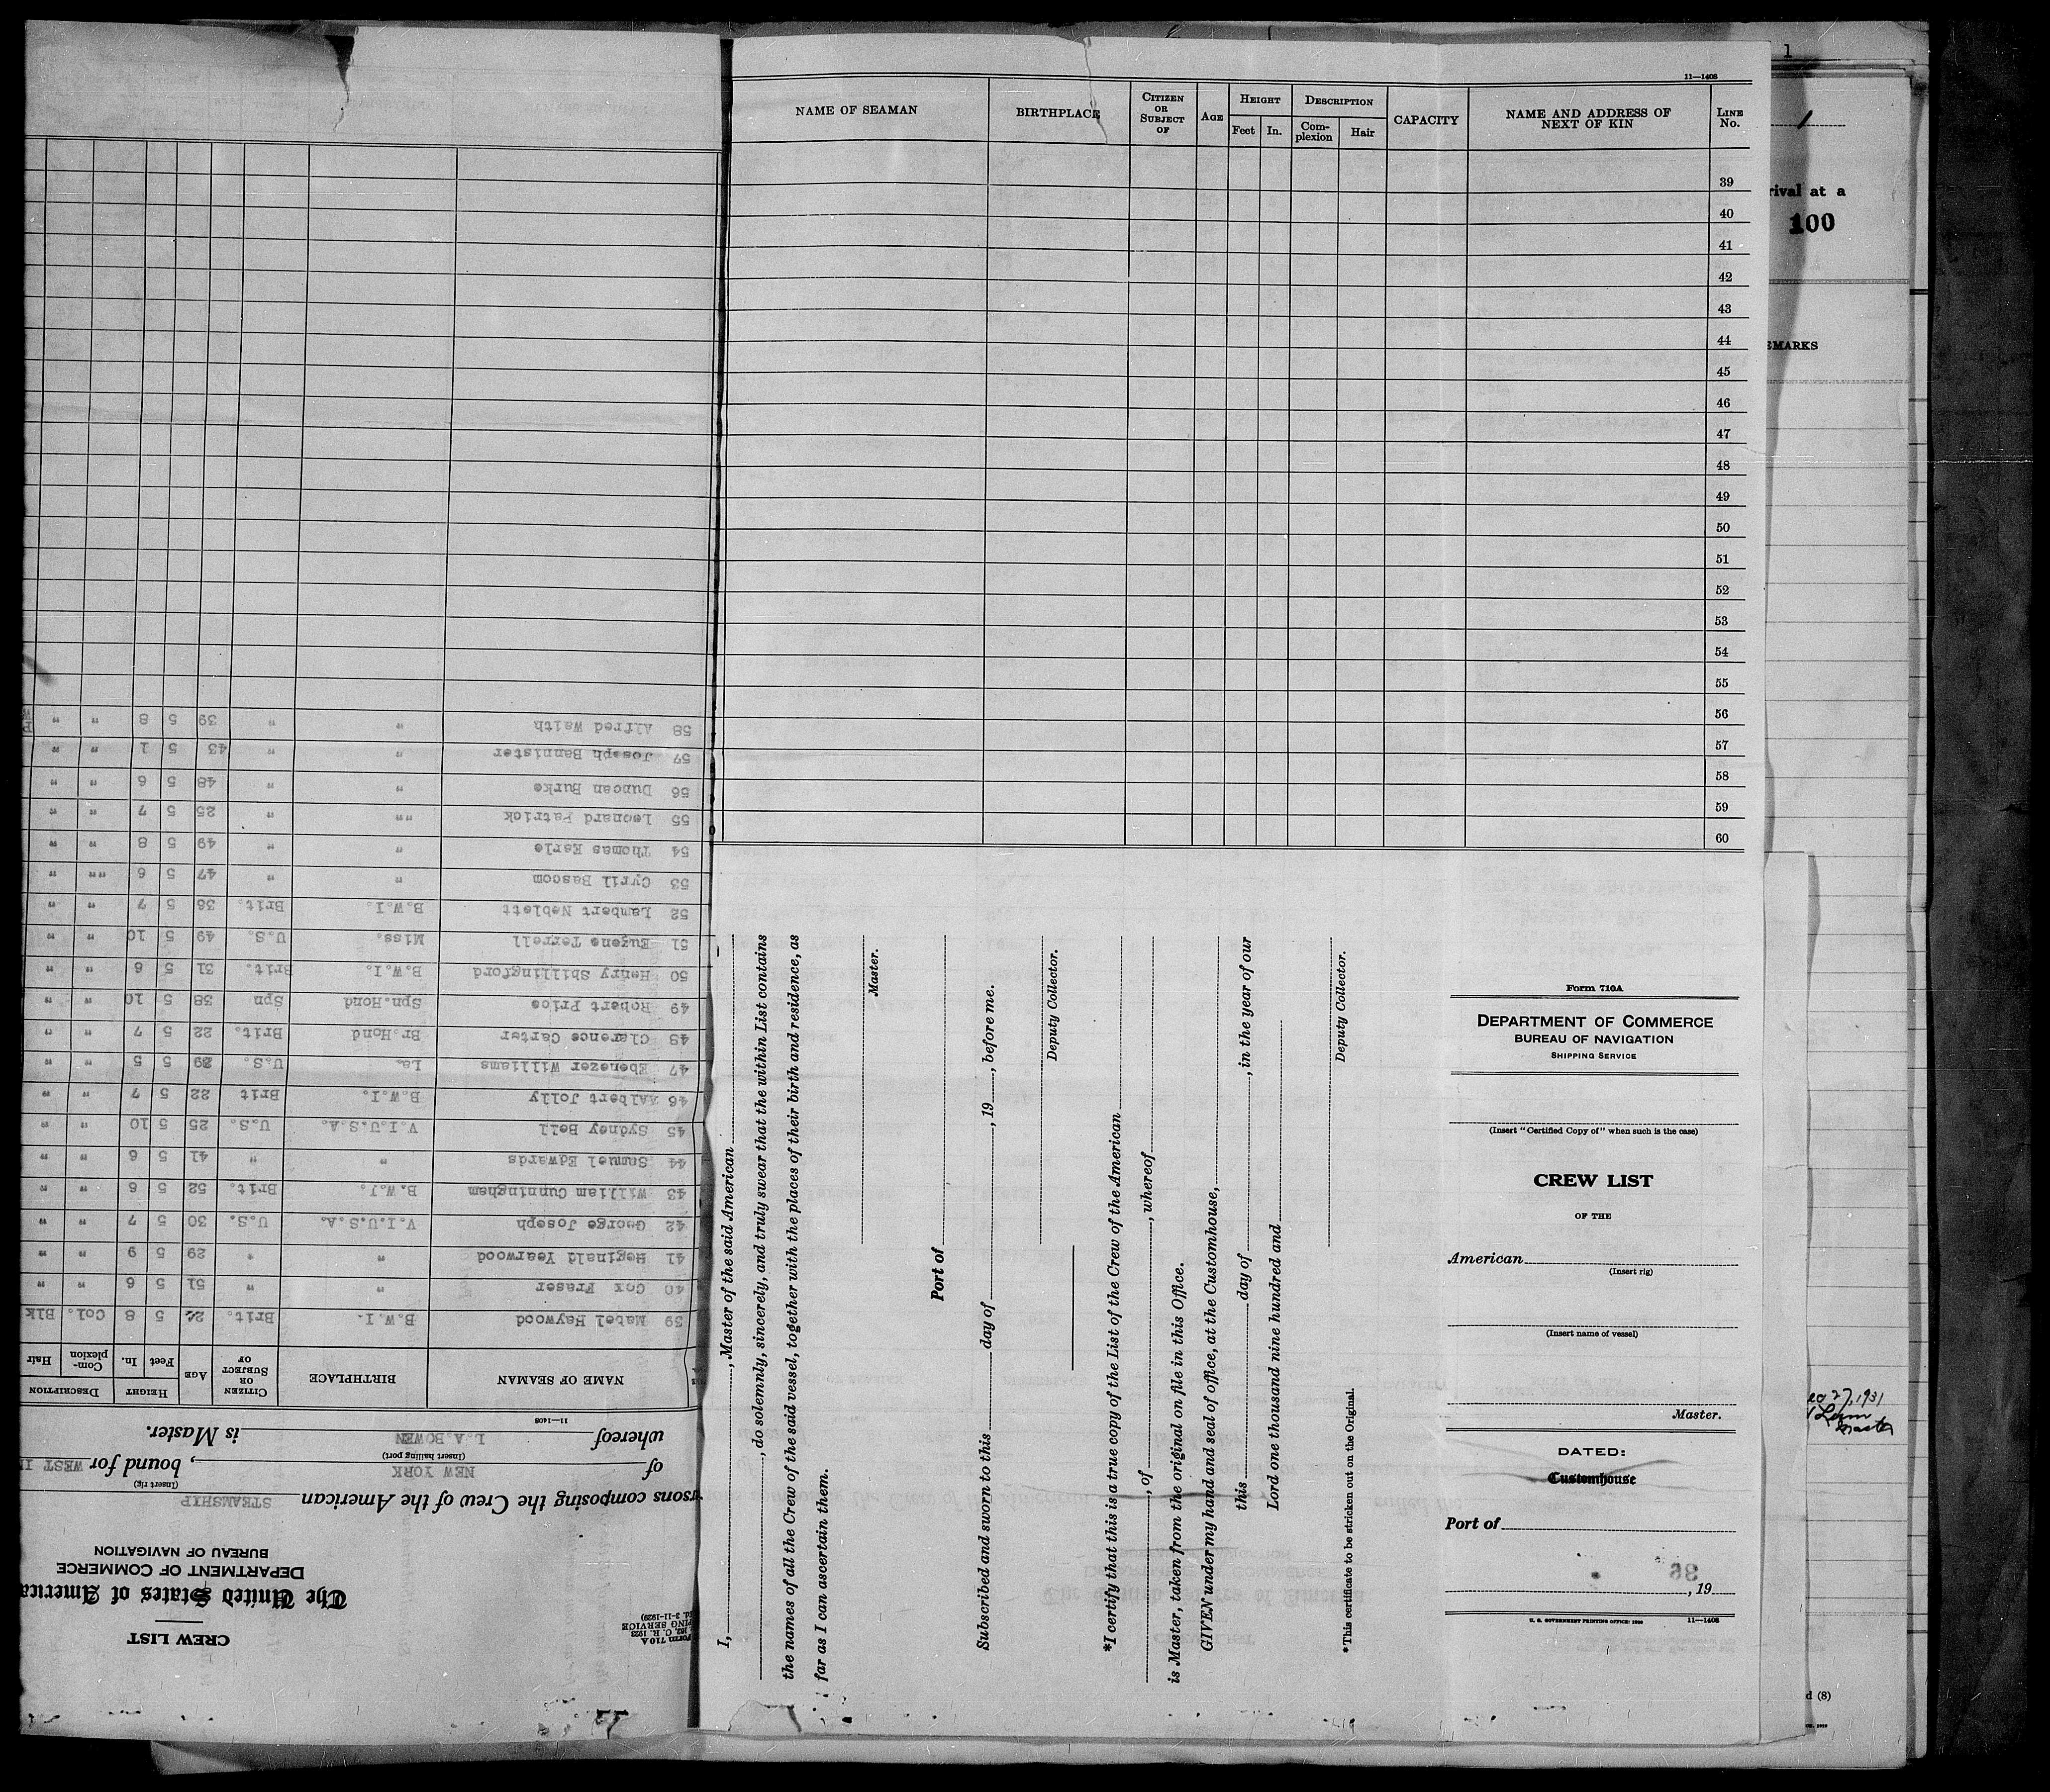 11—1408
NAME OF SEAMAN BIRTHPLACE CITIZEN OR SUBJECT OF AGE HEIGHT Feet In. DESCRIPTION Complexion Hair CAPACITY NAME AND ADDRESS OF NEXT OF KIN LINE No.
39
40
41
42
43
44
45
46
47
48
49
50
51
52
53
54
55
56
57
58
59
60
I, , Master of the said American
, do solemnly, sincerely, and truly swear that the within List contains
the names of all the Crew of the said vessel, together with the places of their birth and residence, as
far as I can ascertain them.
Master.
Port of
Subscribed and sworn to this day of , 19 , before me.
Deputy Collector.
*I certify that this is a true copy of the List of the Crew of the American
, of , whereof
is Master, taken from the original on file in this Office.
GIVEN under my hand and seal of office, at the Customhouse,
this day of , in the year of our
Lord one thousand nine hundred and
Deputy Collector.
*This certificate to be stricken out on the Original.
Form 710A
DEPARTMENT OF COMMERCE
BUREAU OF NAVIGATION
SHIPPING SERVICE
(Insert "Certified Copy of" when such is the case)
CREW LIST
OF THE
American
(Insert rig)
(Insert name of vessel)
Master.
DATED:
Customhouse
Port of
36
, 19
U. S. GOVERNMENT PRINTING OFFICE: 11—1408
CREW LIST
The United States of America
DEPARTMENT OF COMMERCE
BUREAU OF NAVIGATION
rsons composing the Crew of the American STEAMSHIP
(Insert rig)
of NEW YORK , bound for WEST I
(Insert hailing port)
whereof L.A.BOWEN is Master.
11—1408
NAME OF SEAMAN BIRTHPLACE CITIZEN OR SUBJECT OF AGE HEIGHT Feet In. DESCRIPTION Complexion Hair
39 Mabel Haywood B.W.I. Brit. 5 8 Col. Blk
40 Cox Fraser " " 51 5 6 " "
41 Reginald Yearwood " " 29 5 9 " "
42 George Joseph V.I.U.S.A. U.S. 30 5 7 " "
43 William Cunningham B.W.I. Brit. 52 5 6 " "
44 Samuel Edwards " " 41 5 6 " "
45 Sydney Bell V.I.U.S.A. U.S. 25 5 10 " "
46 Albert Jolly B.W.I. Brit 22 5 7 " "
47 Ebenezer Williams La. U.S. 39 5 5 " "
48 Clarence Carter Br.Hond Brit. 22 5 7 " "
49 Robert Price Spn.Hond Spn 38 5 10 " "
50 Henry Shillingford B.W.I. Brit. 31 5 6 " "
51 Eugene Terrell Miss. U.S. 49 5 10 " "
52 Lambert Neblett B.W.I. Brit. 36 5 7 " "
53 Cyril Bascom " " 47 5 6 "" "
54 Thomas Earle " " 49 5 8 " "
55 Leonard Patrick "" " 25 5 7 " "
56 Duncan Burke " " 48 5 6 " "
57 Joseph Bannister " " 43 5 1 " "
58 Alfred Waith " " 39 5 8 " "
1
rival at a
100
EMARKS
27, 1931
Master
d (8)